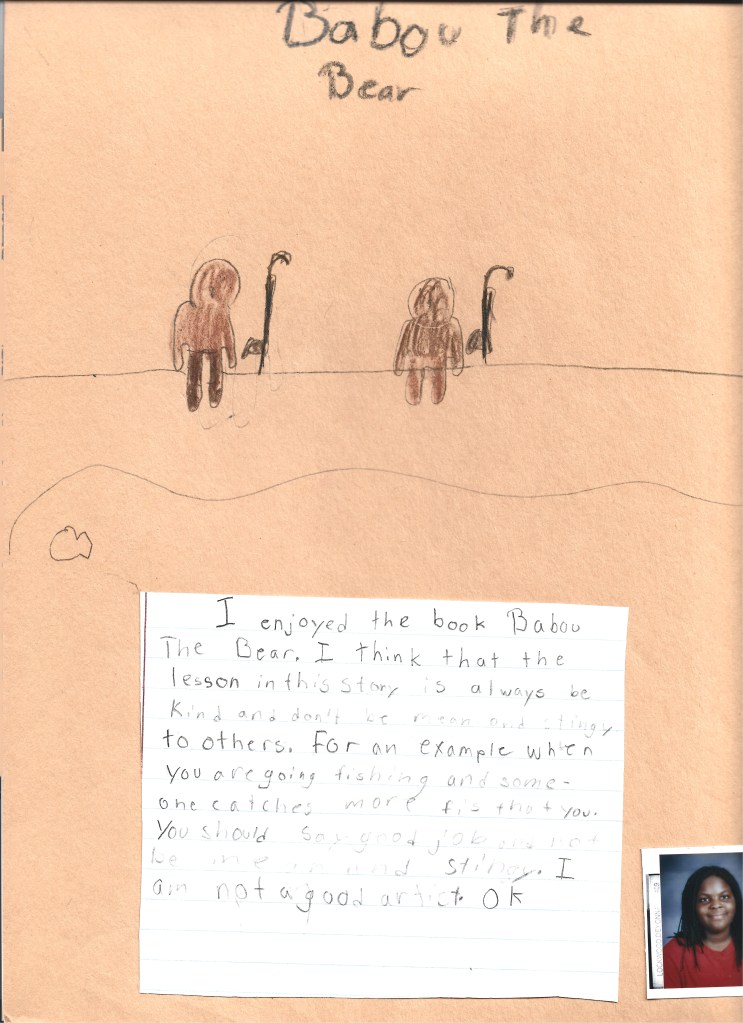 Babou The
Bear
I enjoyed the book Babou
The Bear. I think that the
lesson in this story is always be
kind and don't be mean and stingy
to others. For an example when
you are going fishing and some-
one catches more fis that you.
You should say good job and not
be mean and stingy. I
am not a good artict. OK